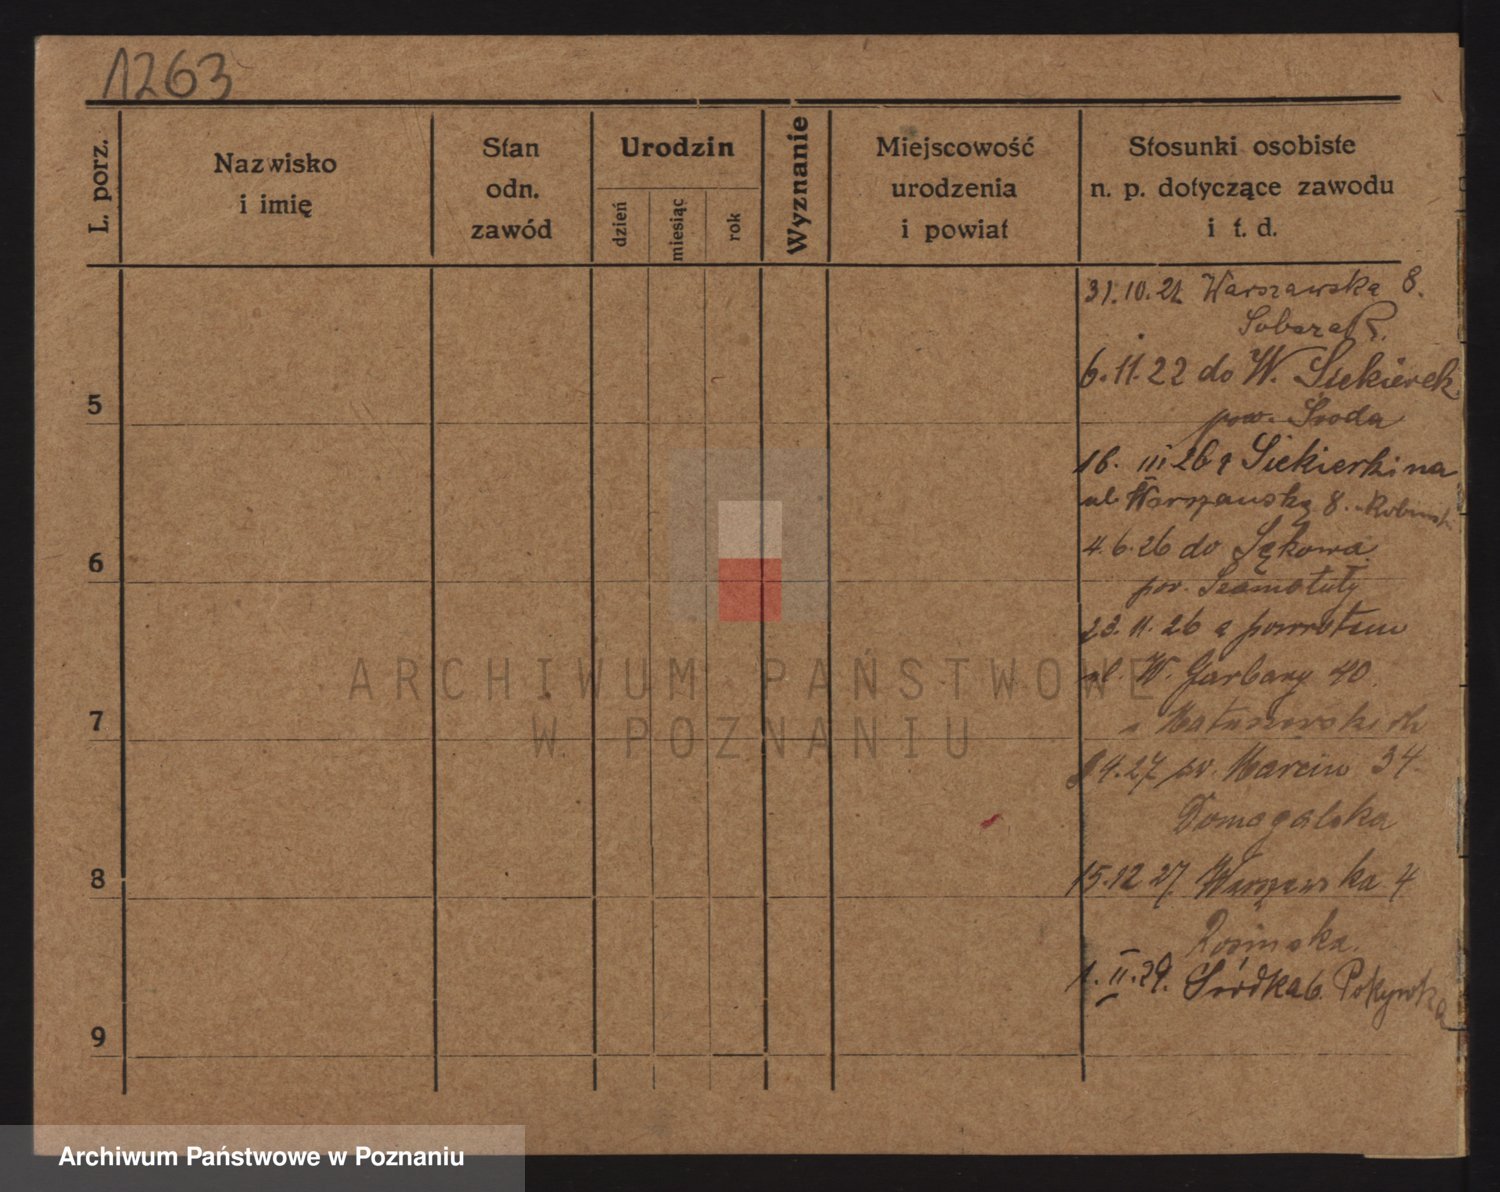 1263
L. porz.
Nazwisko
i imię
Stan
odn.
zawód
Urodzin
dzień
miesiąc
rok
Wyznanie
Miejscowość
urodzenia
i powiat
Stosunki osobiste
n. p. dotyczące zawodu
i t. d.
31.10.21 Warszawska 8.
6.11.22 do W. Siekierek
5
pow. Środa
16. III 26 z Siekierki na
ul. Warszawską 8.
4.6.26 do Sękowa
6
pow. Szamotuły
23.11.26 z powrotem
ul. W. Garbary 40
7
ARCHIWUM PAŃSTWOWE
W POZNANIU
4.27 św. Marcin 34
Domagalska
8
15.12 27 Warszawska 4
Rosinska
1. II. 29. Śródka 6. Pokrywka
9
Archiwum Państwowe w Poznaniu